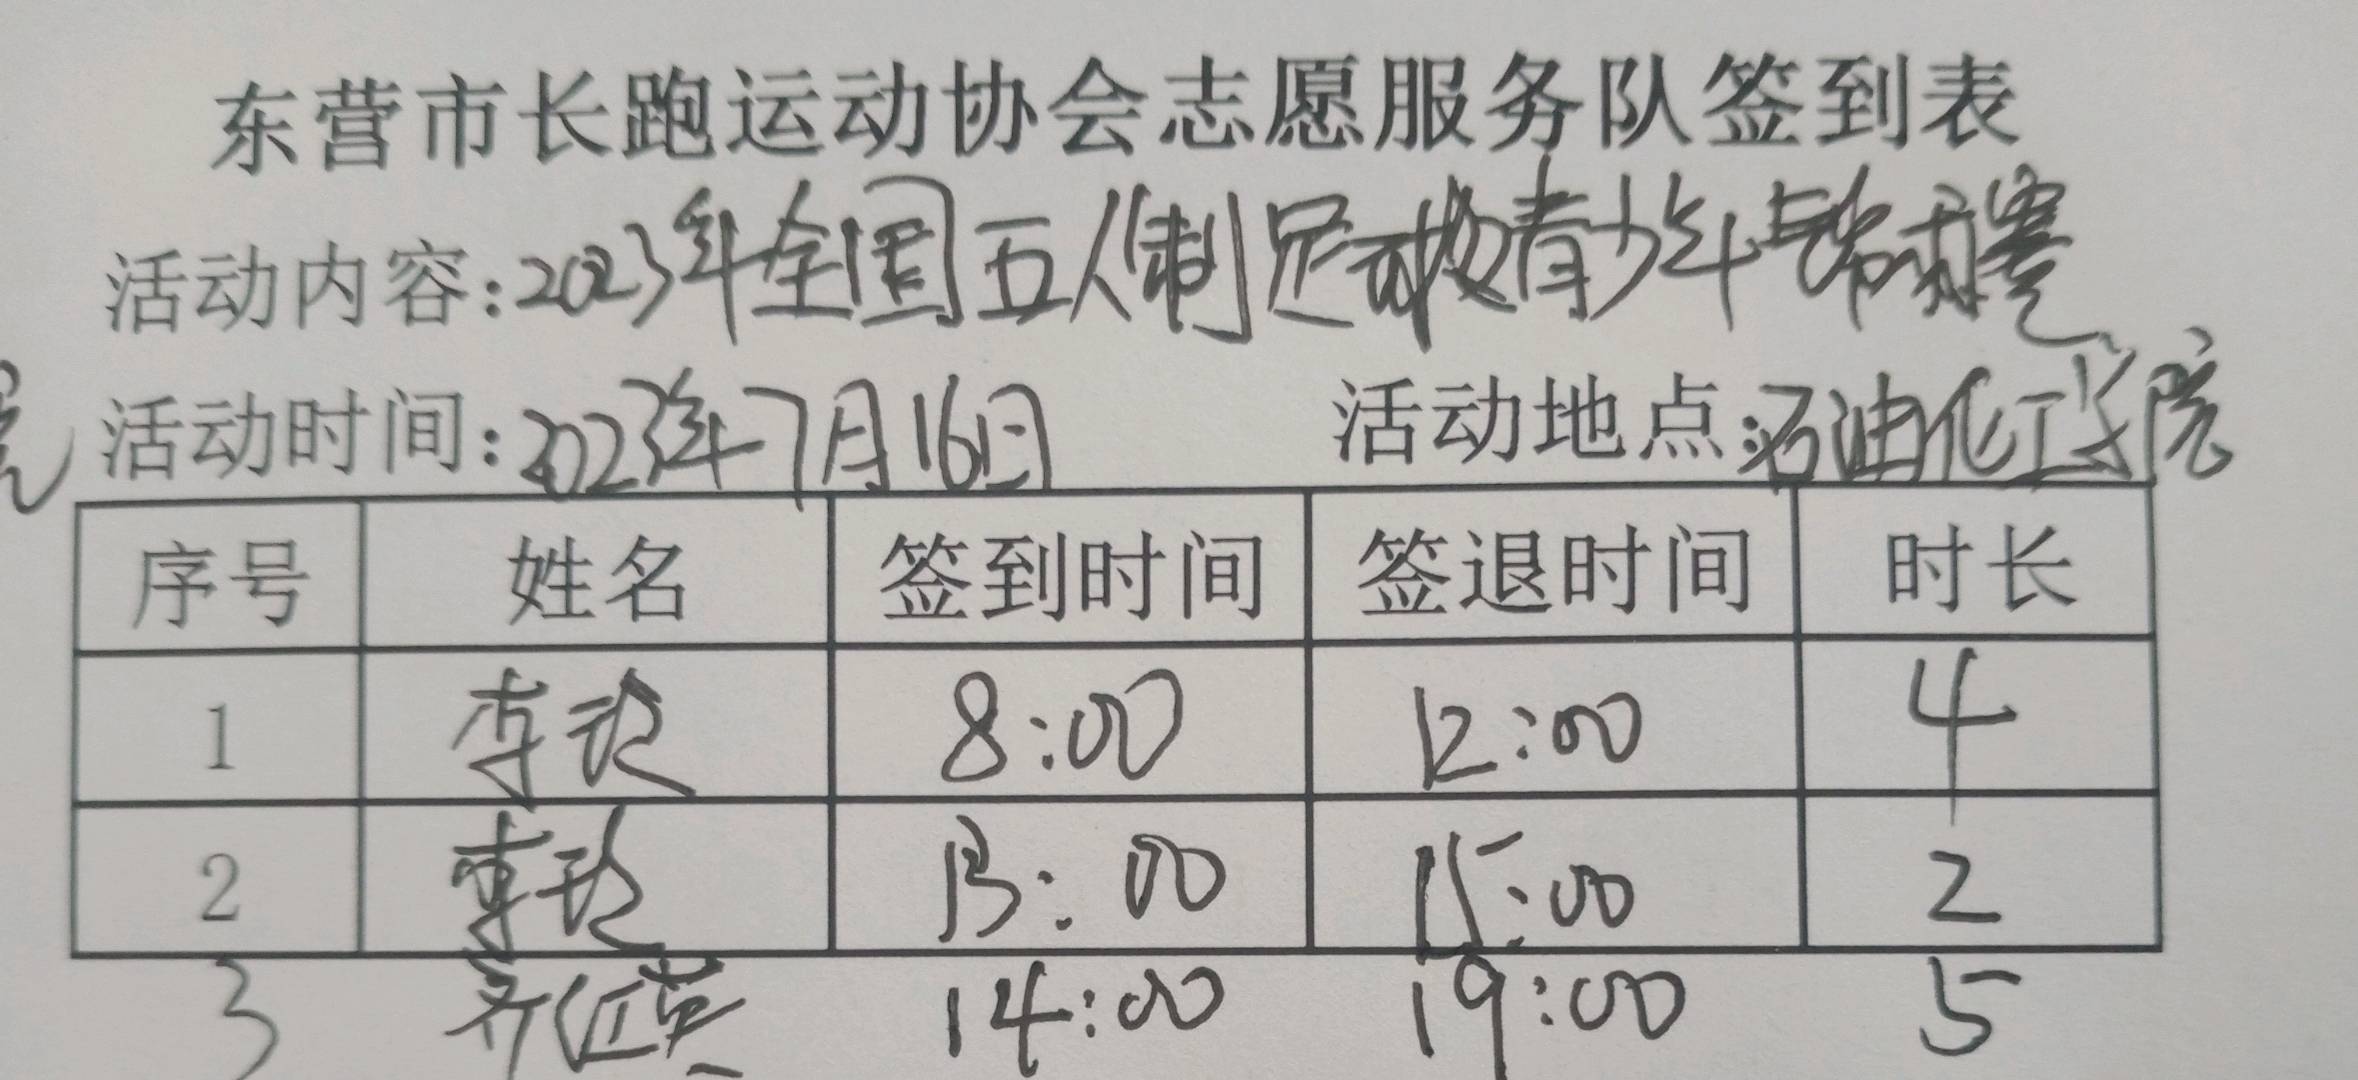 东营市长跑运动协会志愿服务队签到表
活动内容:2023年全国五人制足球青少年锦标赛
活动时间:2023年7月16日 活动地点:石油化工学院
序号 姓名 签到时间 签退时间 时长
1 李 8:00 12:00 4
2 李 13:00 15:00 2
3 齐 英 14:00 19:00 5